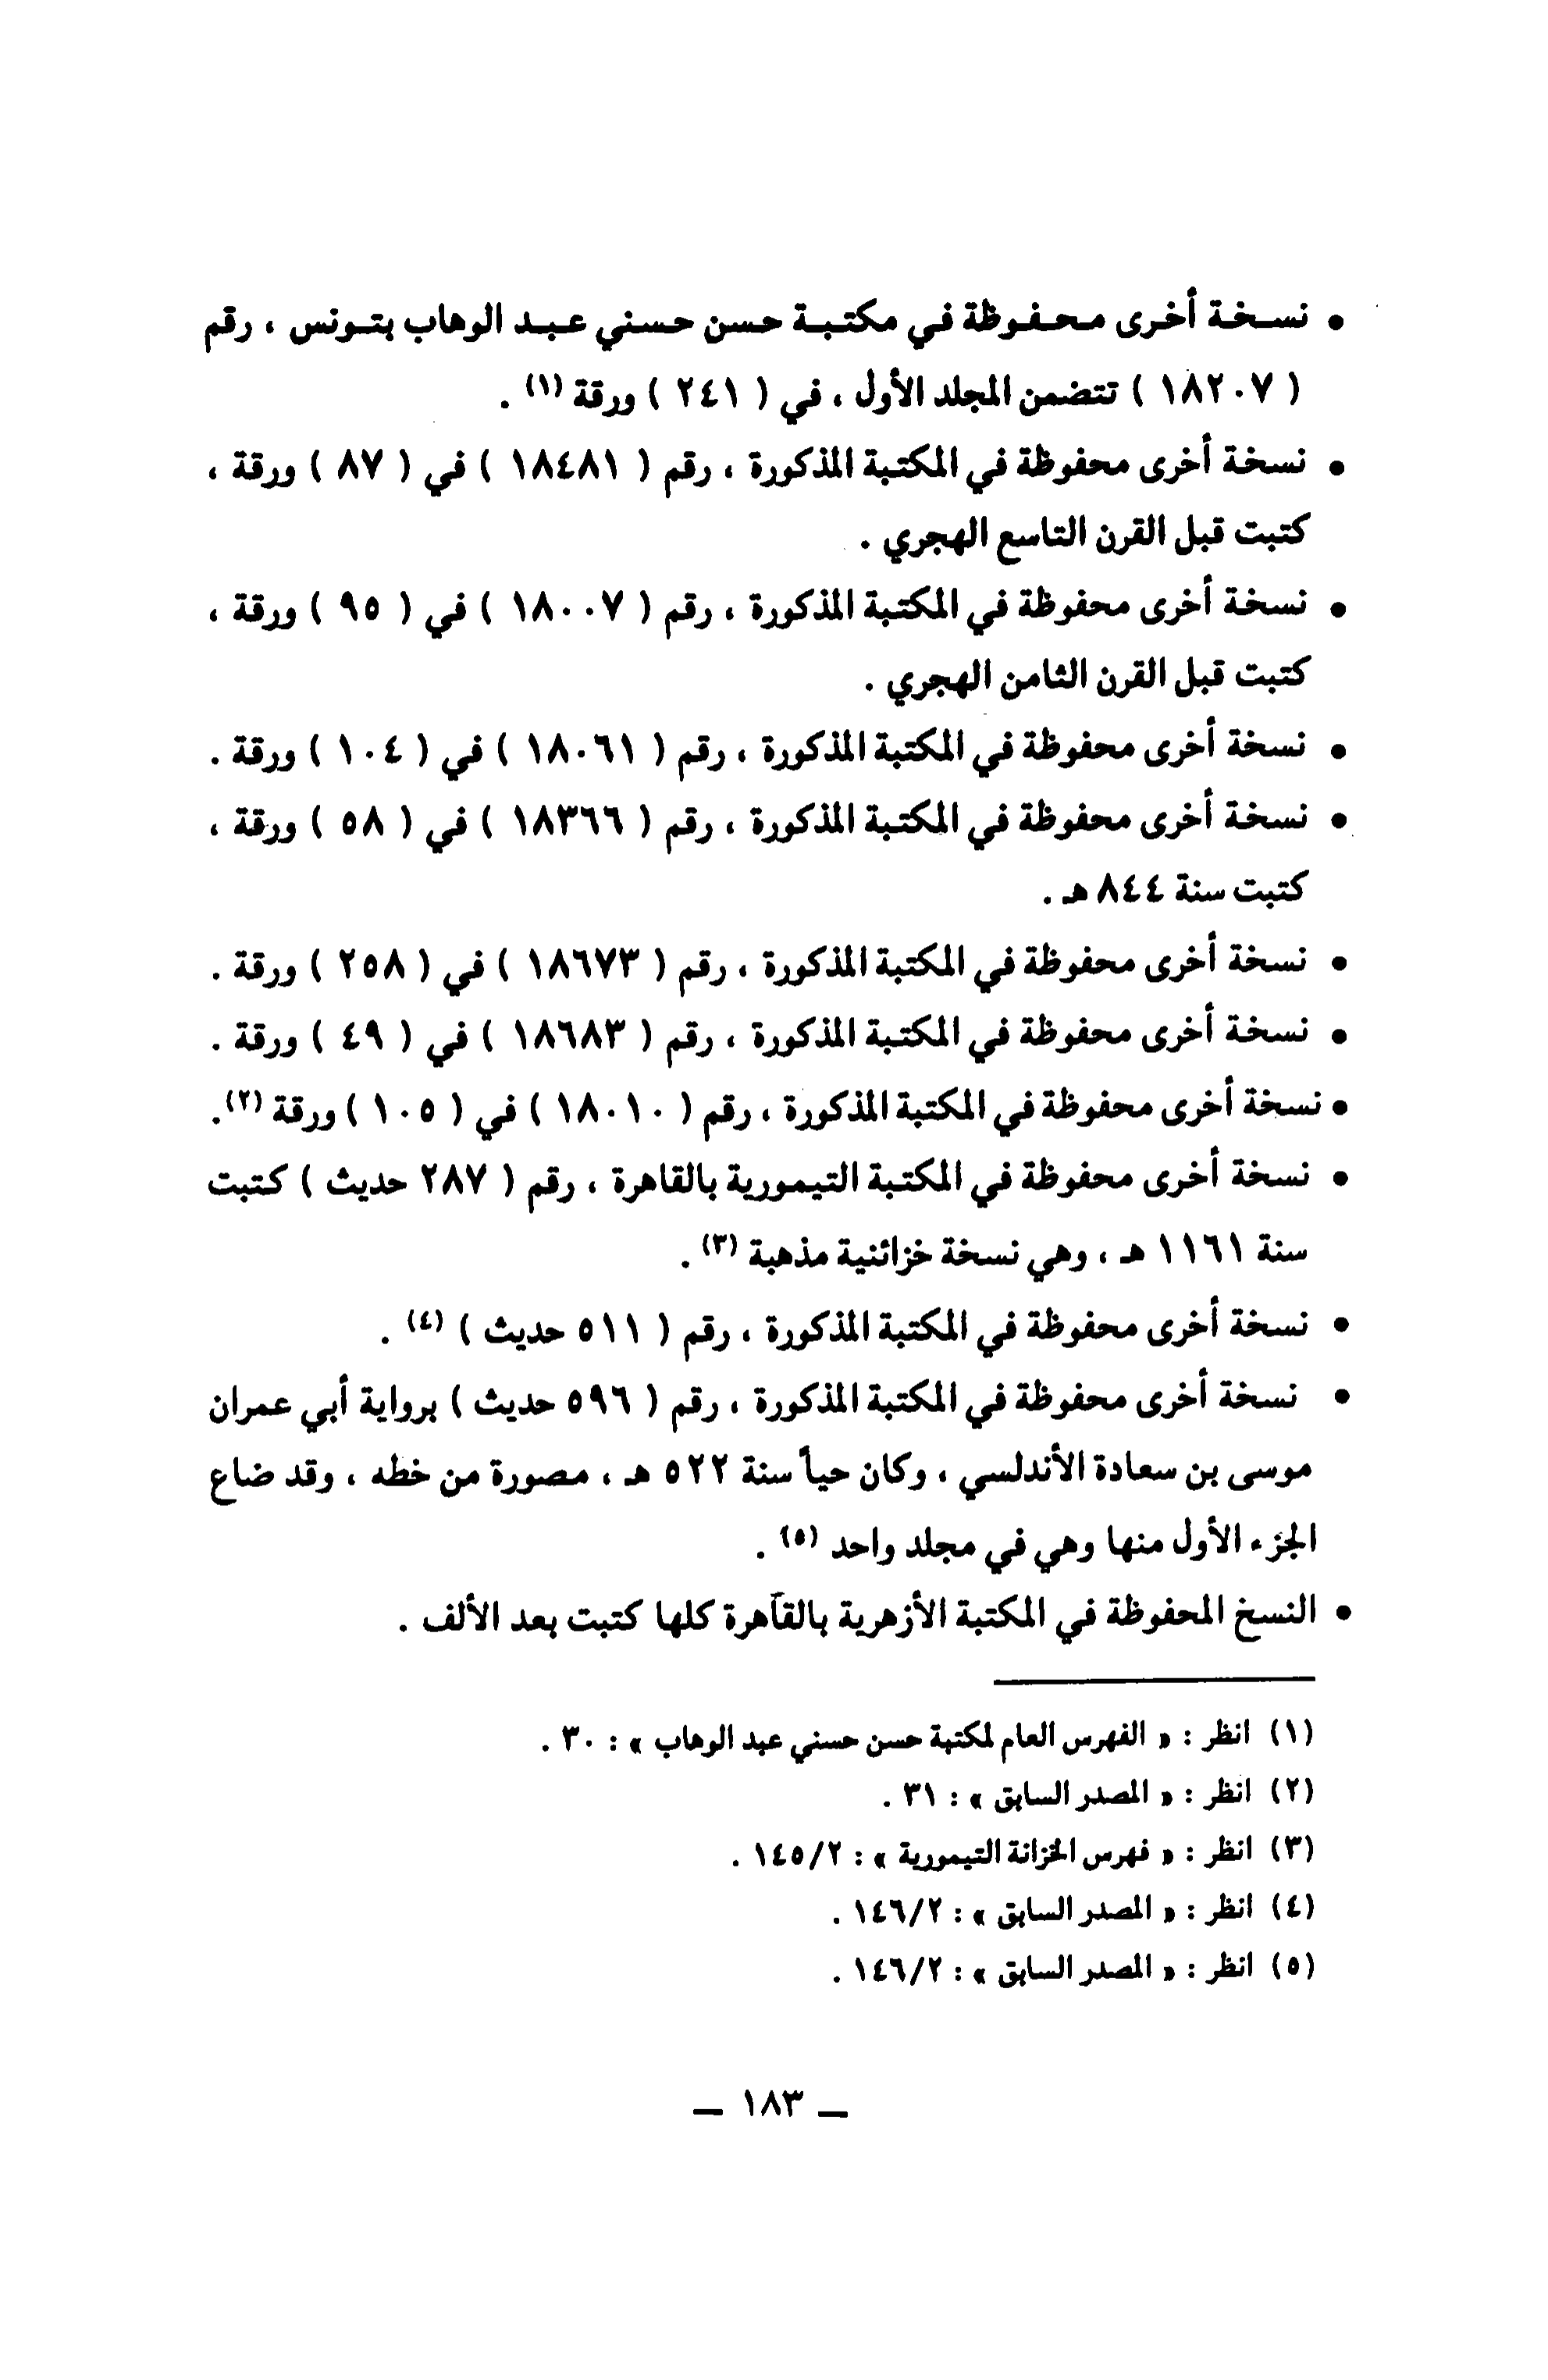 • نسخة أخرى محفوظة في مكتبة حسن حسني عبد الوهاب بتونس ، رقم
( ١٨٢٠٧ ) تتضمن المجلد الأول ، في ( ٢٤١ ) ورقة (١) .
• نسخة أخرى محفوظة في المكتبة المذكورة ، رقم ( ١٨٤٨١ ) في ( ٨٧ ) ورقة ،
كتبت قبل القرن التاسع الهجري .
• نسخة أخرى محفوظة في المكتبة المذكورة ، رقم ( ١٨٠٠٧ ) في ( ٩٥ ) ورقة ،
كتبت قبل القرن الثامن الهجري .
• نسخة أخرى محفوظة في المكتبة المذكورة ، رقم ( ١٨٠٦١ ) في ( ١٠٤ ) ورقة .
• نسخة أخرى محفوظة في المكتبة المذكورة ، رقم ( ١٨٣٦٦ ) في ( ٥٨ ) ورقة ،
كتبت سنة ٨٤٤ هـ .
• نسخة أخرى محفوظة في المكتبة المذكورة ، رقم ( ١٨٦٧٣ ) في ( ٢٥٨ ) ورقة .
• نسخة أخرى محفوظة في المكتبة المذكورة ، رقم ( ١٨٦٨٣ ) في ( ٤٩ ) ورقة .
• نسخة أخرى محفوظة في المكتبة المذكورة ، رقم ( ١٨٠١٠ ) في ( ١٠٥ ) ورقة (٢).
• نسخة أخرى محفوظة في المكتبة التيمورية بالقاهرة ، رقم ( ٢٨٧ حديث ) كتبت
سنة ١١٦١ هـ ، وهي نسخة خزائنية مذهبة (٣) .
• نسخة أخرى محفوظة في المكتبة المذكورة ، رقم ( ٥١١ حديث ) (٤) .
• نسخة أخرى محفوظة في المكتبة المذكورة ، رقم ( ٥٩٦ حديث ) برواية أبي عمران
موسى بن سعادة الأندلسي ، وكان حياً سنة ٥٢٢ هـ ، مصورة من خطه ، وقد ضاع
الجزء الأول منها وهي في مجلد واحد (٥) .
• النسخ المحفوظة في المكتبة الأزهرية بالقآهرة كلها كتبت بعد الألف .
(١) انظر : « الفهرس العام لمكتبة حسن حسني عبد الوهاب » : ٣٠ .
(٢) انظر : « المصدر السابق » : ٣١ .
(٣) انظر : « فهرس الخزانة التيمورية » : ١٤٥/٢ .
(٤) انظر : « المصدر السابق » : ١٤٦/٢ .
(٥) انظر : « المصدر السابق » : ١٤٦/٢ .
– ١٨٣ –